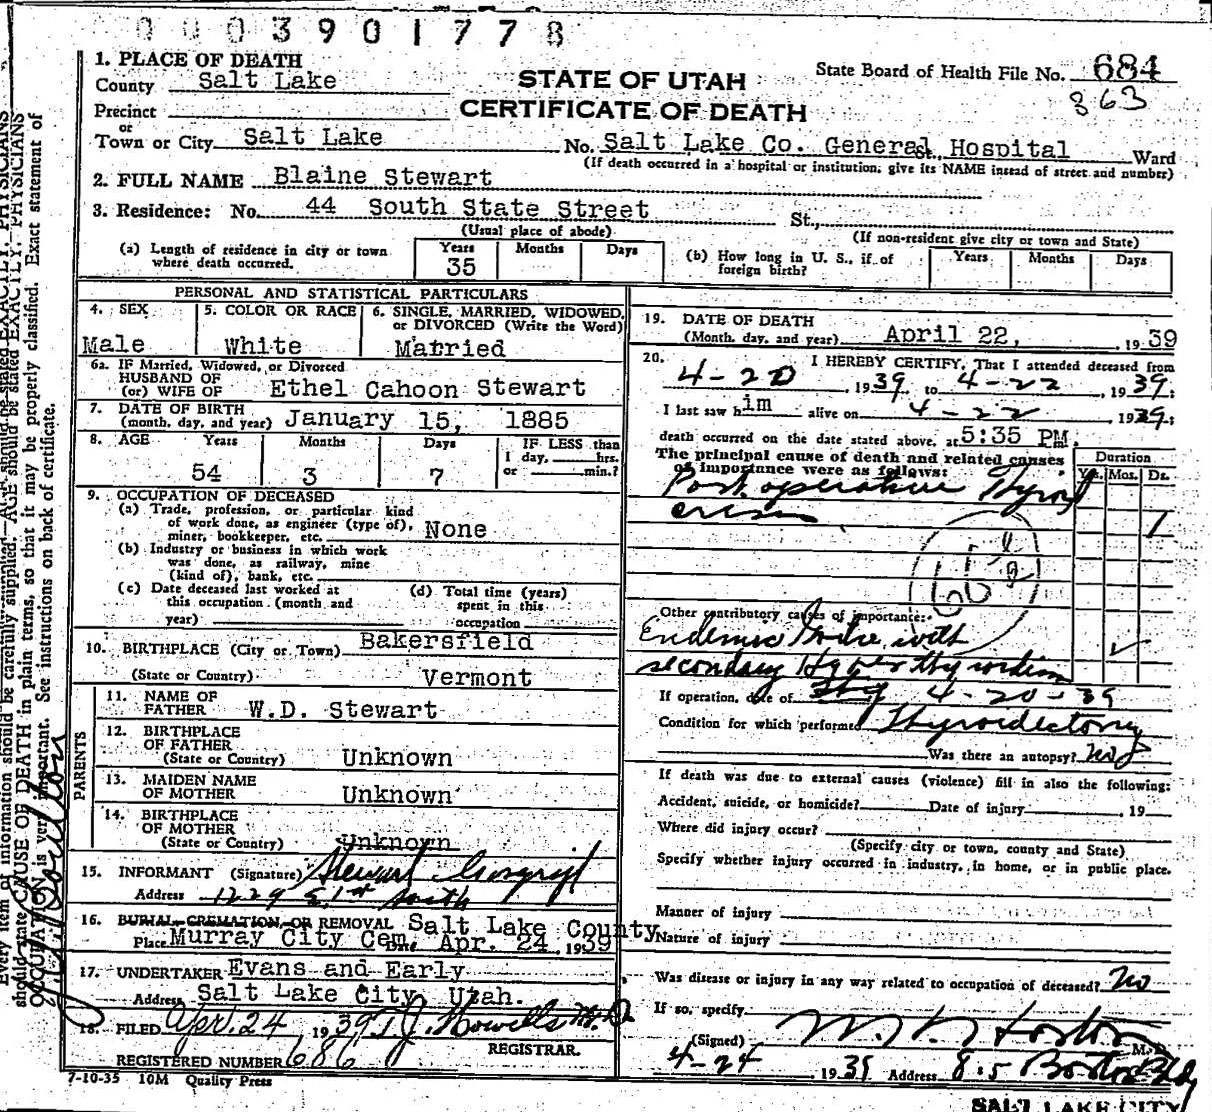 0003901778
1. PLACE OF DEATH
County Salt Lake
STATE OF UTAH
CERTIFICATE OF DEATH
State Board of Health File No. 684
363
Precinct
or
Town or City Salt Lake No. Salt Lake Co. General Hospital Ward
(If death occurred in a hospital or institution, give its NAME instead of street and number)
2. FULL NAME Blaine Stewart
3. Residence: No. 44 South State Street St.,
(Usual place of abode) (If non-resident give city or town and State)
(a) Length of residence in city or town where death occurred.
Years Months Days
35
(b) How long in U. S., if of foreign birth?
Years Months Days
PERSONAL AND STATISTICAL PARTICULARS
4. SEX 5. COLOR OR RACE 6. SINGLE, MARRIED, WIDOWED, or DIVORCED (Write the Word)
Male White Married
6a. IF Married, Widowed, or Divorced
HUSBAND OF
(or) WIFE OF Ethel Cahoon Stewart
7. DATE OF BIRTH
(month, day, and year) January 15, 1885
8. AGE Years Months Days IF LESS than
1 day, hrs.
or min.?
54 3 7
9. OCCUPATION OF DECEASED
(a) Trade, profession, or particular kind
of work done, as engineer (type of),
miner, bookkeeper, etc. None
(b) Industry or business in which work
was done, as railway, mine
(kind of), bank, etc.
(c) Date deceased last worked at
this occupation (month and
year)
(d) Total time (years)
spent in this
occupation
10. BIRTHPLACE (City or Town) Bakersfield
(State or Country) Vermont
PARENTS
11. NAME OF
FATHER W.D. Stewart
12. BIRTHPLACE
OF FATHER
(State or Country) Unknown
13. MAIDEN NAME
OF MOTHER Unknown
14. BIRTHPLACE
OF MOTHER
(State or Country) Unknown
15. INFORMANT (Signature) Stewart
Address 1229 E. 1st South
16. BURIAL, CREMATION, OR REMOVAL Salt Lake County
Place Murray City Cem. Date Apr. 24, 1939
17. UNDERTAKER Evans and Early
Address Salt Lake City, Utah.
18. FILED Apr. 24 1939 T.J. Howells M.D
REGISTRAR.
REGISTERED NUMBER 686
7-10-35 10M Quality Press
19. DATE OF DEATH
(Month, day, and year) April 22, 1939
20. I HEREBY CERTIFY, That I attended deceased from
4-20 1939, to 4-22 1939;
I last saw him alive on 4-22 1939;
death occurred on the date stated above, at 5:35 PM.
The principal cause of death and related causes
of importance were as follows:
Duration
Yrs. Mos. Ds.
Post operative Thyroid
crisis 1
Other contributory causes of importance:
Endemic Goitre with
secondary Hyperthyroidism
If operation, date of 4-20-39
Condition for which performed Thyroidectomy
Was there an autopsy? No
If death was due to external causes (violence) fill in also the following:
Accident, suicide, or homicide? Date of injury 19
Where did injury occur?
(Specify city or town, county and State)
Specify whether injury occurred in industry, in home, or in public place.
Manner of injury
Nature of injury
Was disease or injury in any way related to occupation of deceased? No
If so, specify
(Signed) M. D.
4-24 1939 Address Boston Bldg
SALT LAKE CITY